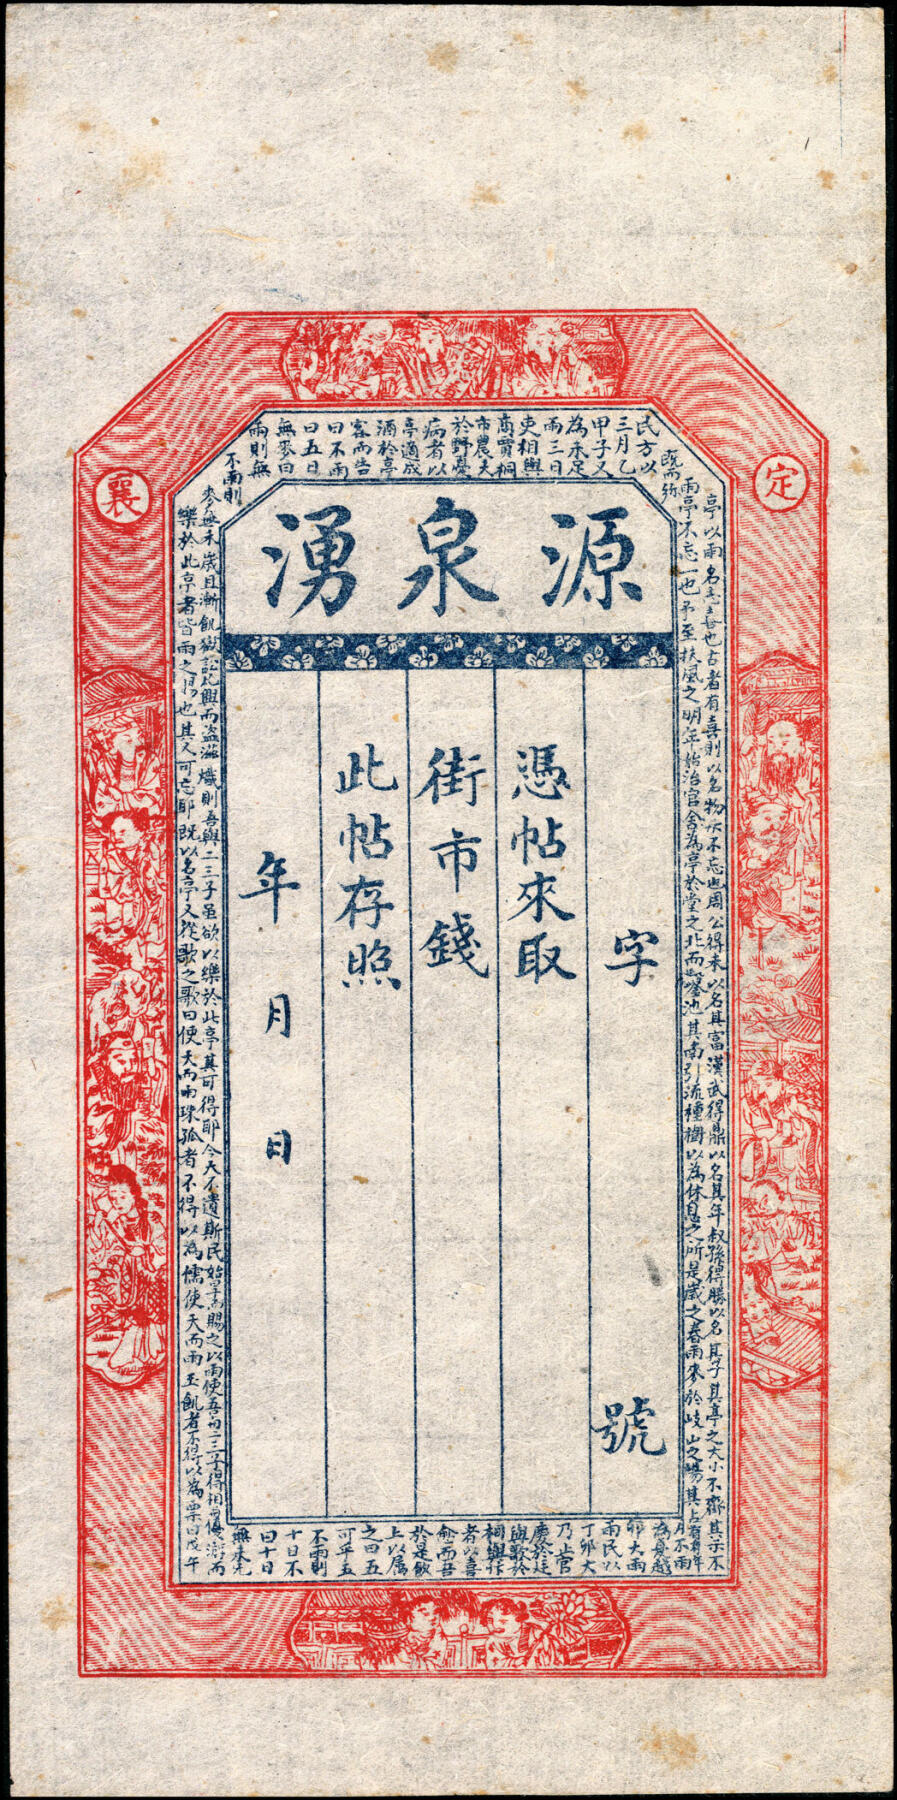 定
襄
源泉湧
字號
憑帖來取
街市錢
此帖存照
年月日
亭以雨名志喜也古者有喜則以名物示不忘也周公得禾以名其富漢武得鼎以名其年叔孫得勝以名其子其亭之大小不齊其示不
雨亭不忘一也予至扶風之明年始治官舍為亭於堂之北而鑿池其南引流種樹以為休息之所是歲之春雨麥於岐山之陽其占為有年
既而弥
民方以
三月乙
甲子又
為未足
雨三日
吏相與
商賈
市農夫
於野憂
病者以
亭適成
酒於亭
客而告
曰不雨
曰五日
無麥曰
雨則無
不雨則
麥無禾歲且漸飢獄訟興而盜滋熾則吾與二三子虽欲以樂於此亭其可得耶今天不遺斯民始旱而賜之以雨使吾與二三子得相與優游而
樂於此亭者皆雨之賜也其又可忘耶既以名亭又從歌之歌曰使天而雨珠者不得以為襦使天而雨玉飢者不得以為粟曰戊午
月不雨
為憂越
卯大雨
雨民以
丁卯大
乃止官
慶於廷
與歌於
相與忭
者以喜
愈而吾
於是
上以屬
之曰五
可乎五
不雨則
十日不
曰十日
無禾